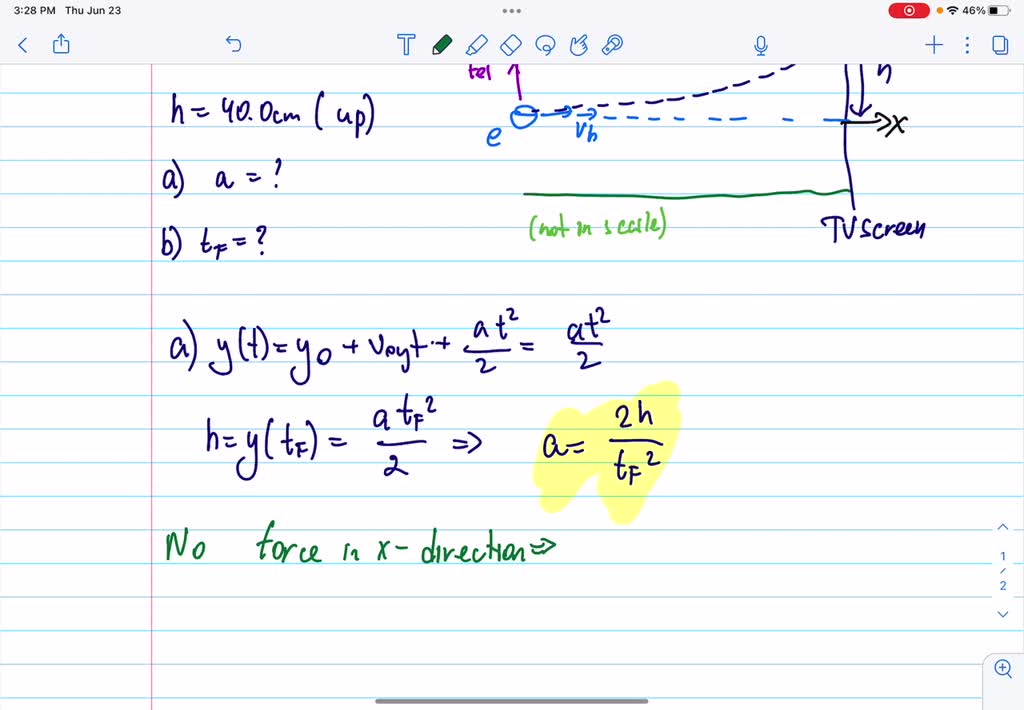 3:28 PM Thu Jun 23
46%
h
h = 40.0cm ( up)
e
Vh
x
a) a = ?
(not in scale)
TV screen
b) tF = ?
a) y(t) = y0 + v0yt + at²/2 = at²/2
h = y(tF) = atF²/2 => a = 2h/tF²
No force in x-direction =>
1
/
2